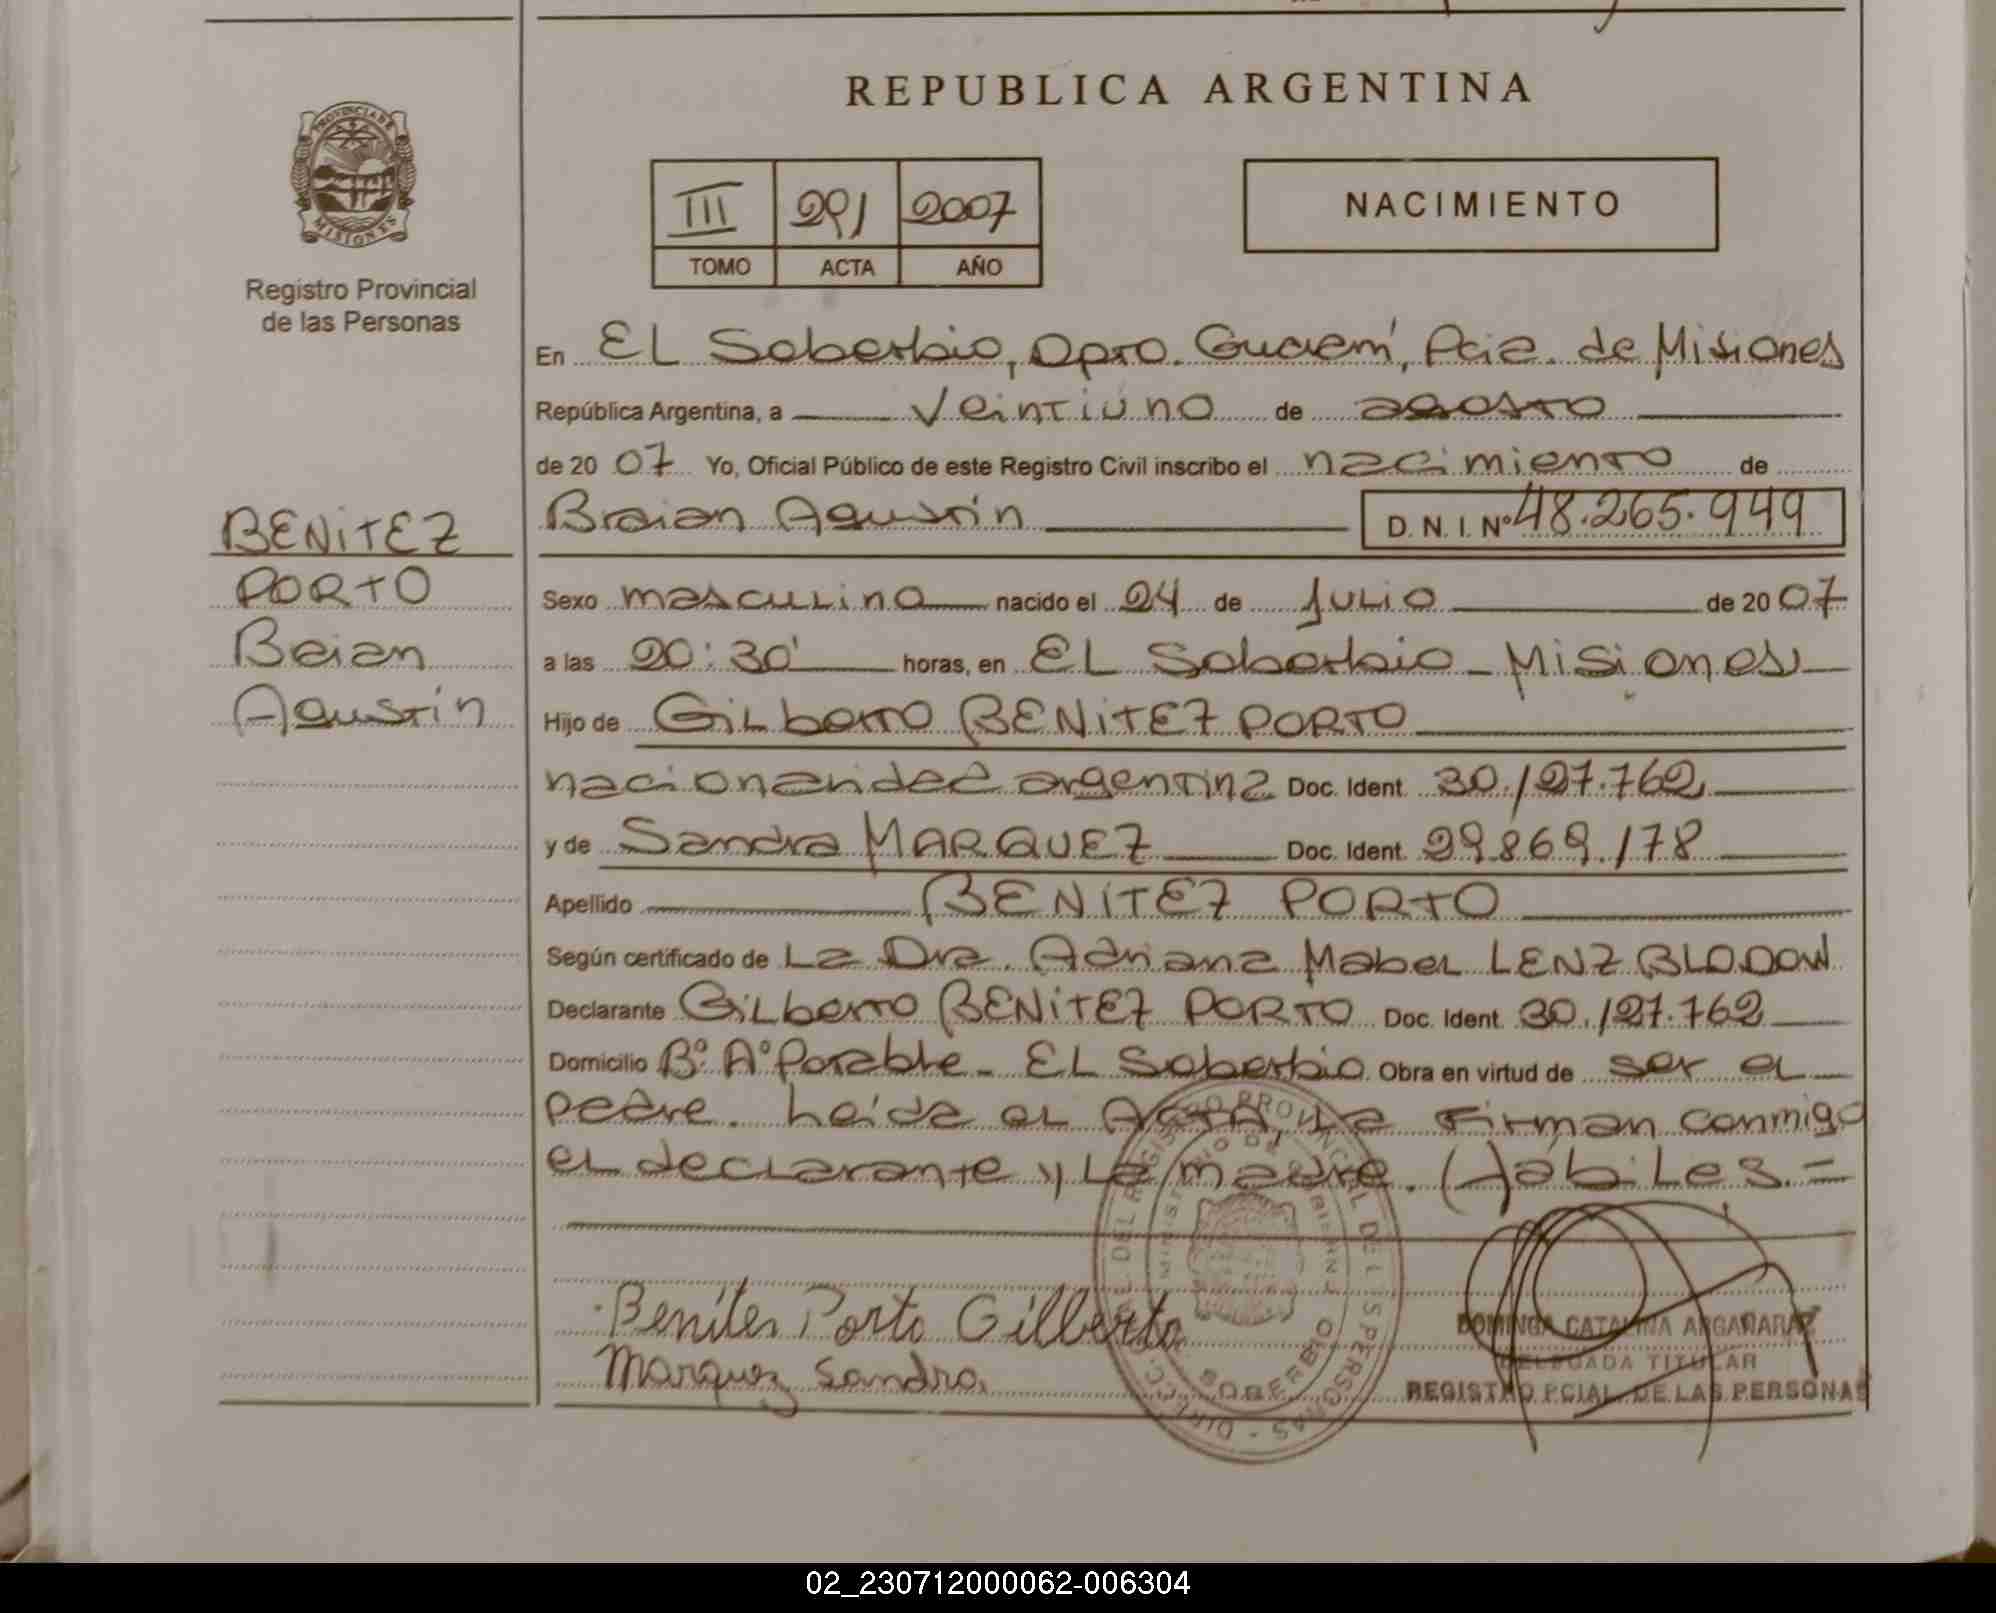 REPUBLICA ARGENTINA
PROVINCIA DE
MISIONES
Registro Provincial
de las Personas
III 291 2007
TOMO ACTA AÑO
NACIMIENTO
En EL Soberbio, Dpto. Guaraní, Pcia. de Misiones
República Argentina, a veintiuno de agosto
de 20 07 Yo, Oficial Público de este Registro Civil inscribo el nacimiento de
Braian Agustín D. N. I. Nº 48.265.949
BENITEZ
PORTO
Braian
Agustín
Sexo masculino nacido el 24 de Julio de 20 07
a las 20:30' horas, en EL Soberbio - Misiones
Hijo de Gilberto BENITEZ PORTO
nacionalidad argentina Doc. Ident. 30.127.762
y de Sandra MARQUEZ Doc. Ident. 29.869.178
Apellido BENITEZ PORTO
Según certificado de La Dra. Adriana Mabel LENZ BLODOW
Declarante Gilberto BENITEZ PORTO Doc. Ident. 30.127.762
Domicilio Bº Aº Parable - EL Soberbio Obra en virtud de ser el
padre. Leída el ACTA, La Firman conmigo
el declarante y La madre. Hábiles. =
Benites Porto Gilberto
Marquez Sandra
DIRECC. GRAL. DEL REGISTRO PROVINCIAL DE LAS PERSONAS
MINISTERIO DE GOBIERNO
SOBERBIO
DOMINGA CATALINA ARGAÑARAZ
DELEGADA TITULAR
REGISTRO PCIAL. DE LAS PERSONAS
02_230712000062-006304